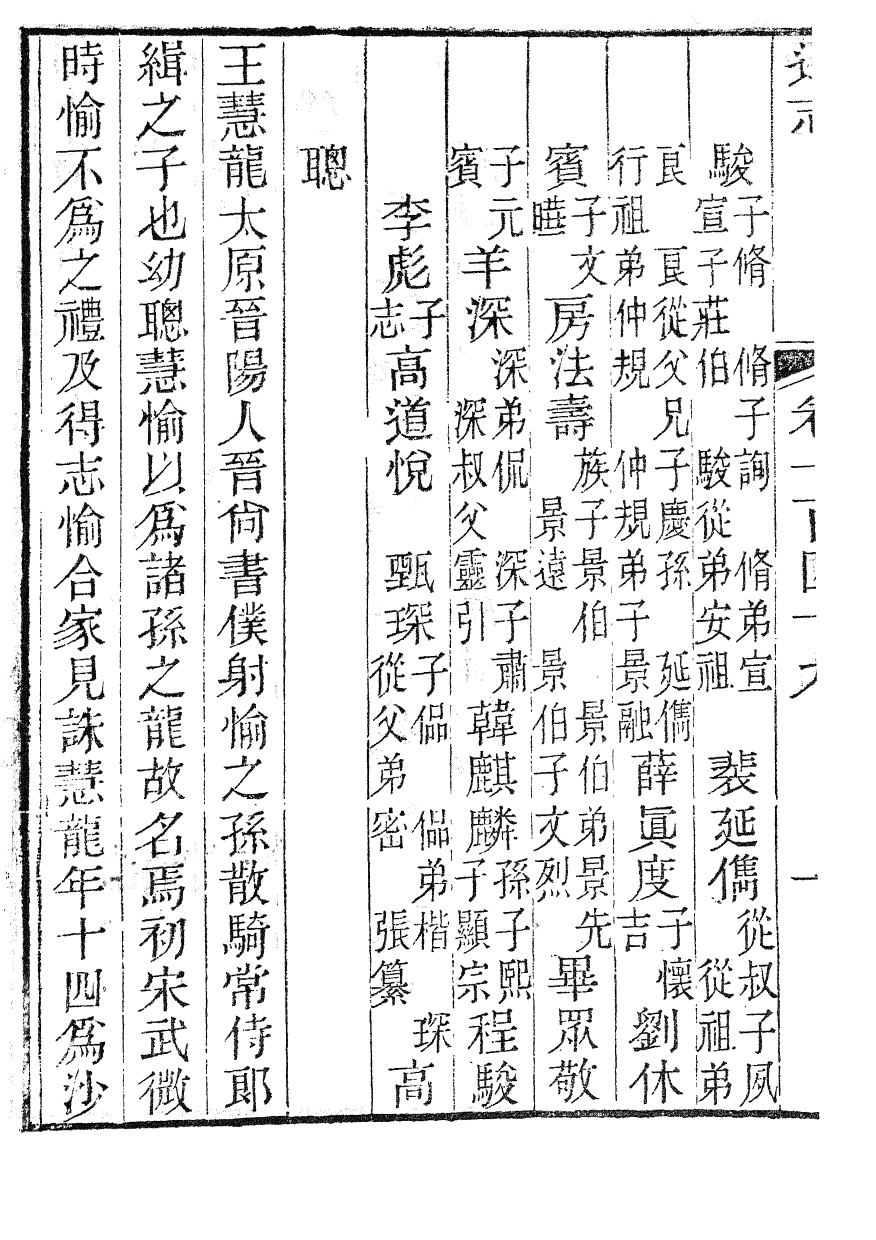 通志 卷一百四十六 一
駿 子脩 脩子詢 脩弟宣 宣子莊伯 駿從弟安祖 裴延儁 從叔子夙 從祖弟
良 良從父兄子慶孫 延儁 行祖弟仲規 仲規弟子景融 薛眞度 子懷吉 劉休
賓 子文曄 房法壽 族子景伯 景伯弟景先 景遠 景伯子文烈 畢眾敬
子元賓 羊深 深弟侃 深子肅 深叔父靈引 韓麒麟 孫子熙 子顯宗 程駿
李彪 子志 高道悅 甄琛 子偘 偘弟楷 琛從父弟密 張纂 高
聰
王慧龍太原晉陽人晉尙書僕射愉之孫散騎常侍郎
緝之子也幼聰慧愉以爲諸孫之龍故名焉初宋武微
時愉不爲之禮及得志愉合家見誅慧龍年十四爲沙